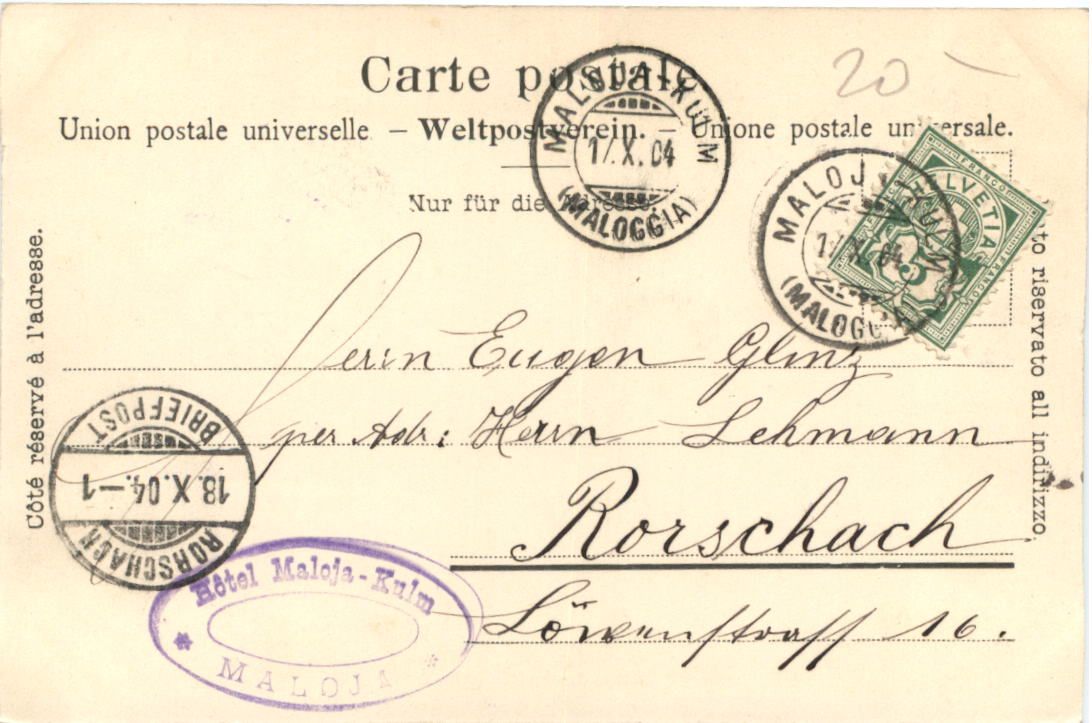 20
Carte postale
Union postale universelle – Weltpostverein. – Unione postale universale.
Nur für die Adresse.
MALOJA-KULM
17.X.04
(MALOGGIA)
MALOJA-KULM
17.X.04
(MALOGGIA)
HELVETIA
FRANCO
FRANCO
5
Côté réservé à l'adresse.
to riservato all indirizzo
Herrn Eugen Glinz
per Adr: Herrn Lehmann
Rorschach
Löwenstrasse 16.
RORSCHACH
18.X.04.–1
BRIEFPOST
Hôtel Maloja-Kulm
* MALOJA *